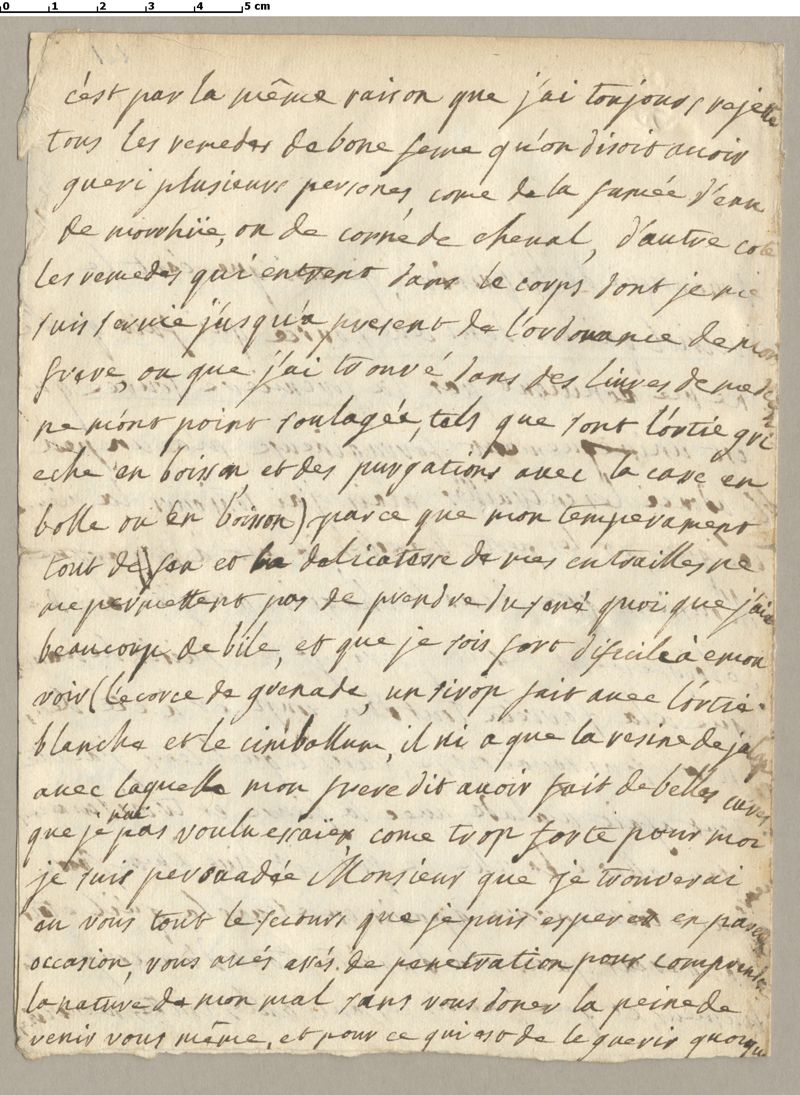 0 1 2 3 4 5 cm
c'est par la même raison que j'ai toujours rejetté
tous les remedes de bone feme qu'on disoit avoir
gueri plusieurs persones, come de la fumée d'eau
de morrhüe, ou de corne de cheval, d'autre coté
les remedes qui entrent dans le corps dont je me
suis servie j'usqu'a present de l'ordonance de mon
frere, ou que j'ai trouvé dans des livres de
ne m'ont point soulagée, tels que sont l'ortie gri
eche en boisson, et des purgations avec la care en
bolle ou en boisson) parce que mon temperament
tout de feu et la delicatesse de mes entrailles ne
me permettent pas de prendre du sené quoi que j'aie
beaucoup de bile, et que je sois fort dificile à emou
voir (l'ecorce de grenade, un sirop fait avec l'ortie
blanche et le cimballum, il ni a que la resine de jalap
avec laquelle mon frere dit avoir fait de belles cures
que je n'ai pas voulu essaïer, come trop forte pour moi
je suis persuadée Monsieur que je trouverai
en vous tout le secours que je puis esperer en pareille
occasion, vous avés assés de penetration pour comprendre
la nature de mon mal sans vous doner la peine de
venir vous même, et pour ce qui est de le guerir quoique